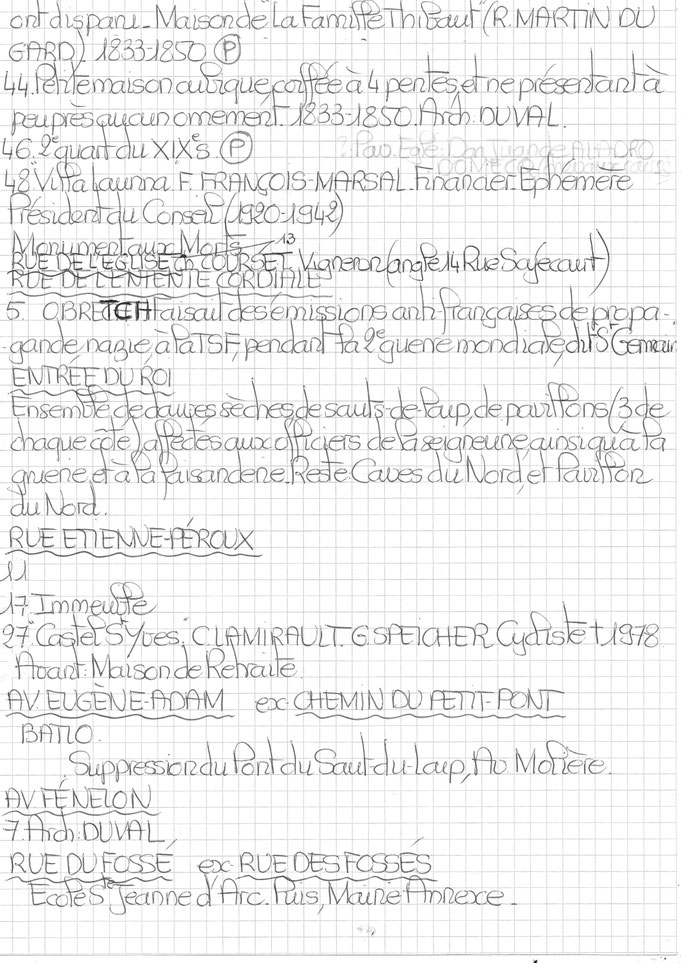 ont disparu_ Maison de "La Famille Thibaut" (R. MARTIN DU
GARD). 1833-1850 (P)
44. Petite maison cubique, coiffée à 4 pentes, et ne présentant à
peu près aucun ornement. 1833-1850. Arch. DUVAL.
46. 2e quart du XIXe s. (P)
48 "Villa Laurina" F. FRANÇOIS-MARSAL. Financier. Ephémère
Président du Conseil (1920-1942)
Monument aux Morts
13
RUE DE L'EGLISE Ch. COURSET, Vigneron (angle 14 Rue Solférino)
RUE DE L'ENTENTE CORDIALE
5. OBRETCH faisait des émissions anti-françaises de propa-
gande nazie à la TSF, pendant la 2e guerre mondiale, dit St Germain
ENTRÉE DU ROI
Ensemble de douves sèches, de sauts-de-loup, de pavillons (3 de
chaque côté) affectés aux officiers de la seigneurie, ainsi qu'à la
gruerie, et à la faisanderie. Reste: Caves du Nord, et Pavillon
du Nord.
RUE ETIENNE-PÉROUX
11
17. Immeuble
27 "Castel St Yves". C. LAMIRAULT. G. SPEICHER Cycliste † 1978
Avant: Maison de Retraite.
AV. EUGÈNE-ADAM ex- CHEMIN DU PETIT-PONT
BATLO.
Suppression du Pont du Saut-du-Loup, Av. Molière.
AV. FÉNELON
7. Arch. DUVAL
RUE DU FOSSÉ ex- RUE DES FOSSÉS
Ecole Ste Jeanne d'Arc. Puis, Mairie-Annexe_